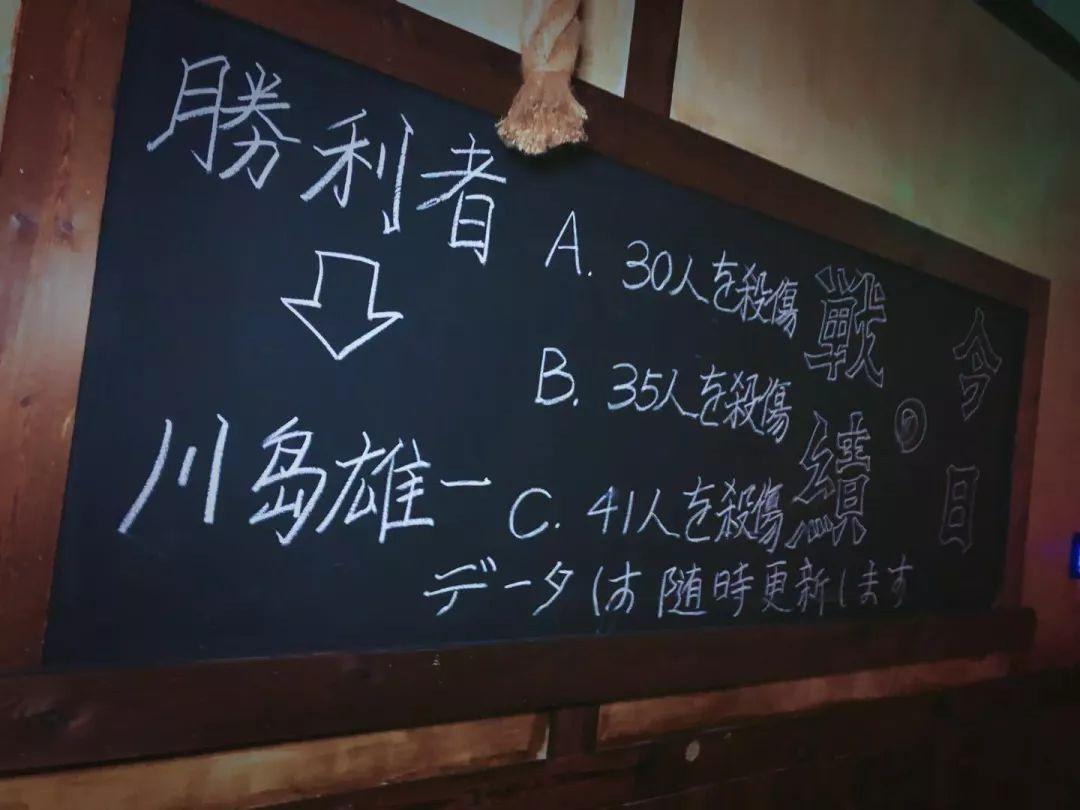 今日の
戦績
勝利者
川島雄一
A. 30人を殺傷
B. 35人を殺傷
C. 41人を殺傷
データは随時更新します